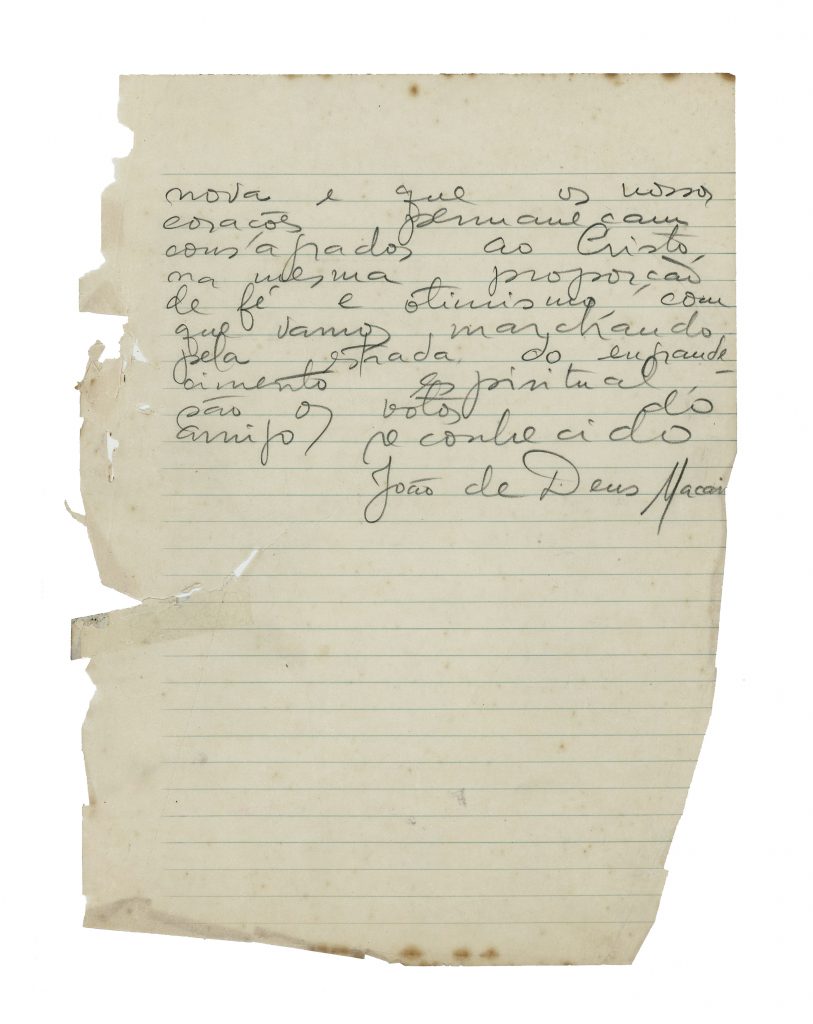 nova e que os nossos
corações permaneçam
consagrados ao Cristo,
na mesma proporção
de fé e otimismo, com
que vamos marchando,
pela estrada do engrande-
cimento espiritual,
são os votos do
amigo, reconhecido
João de Deus Macar